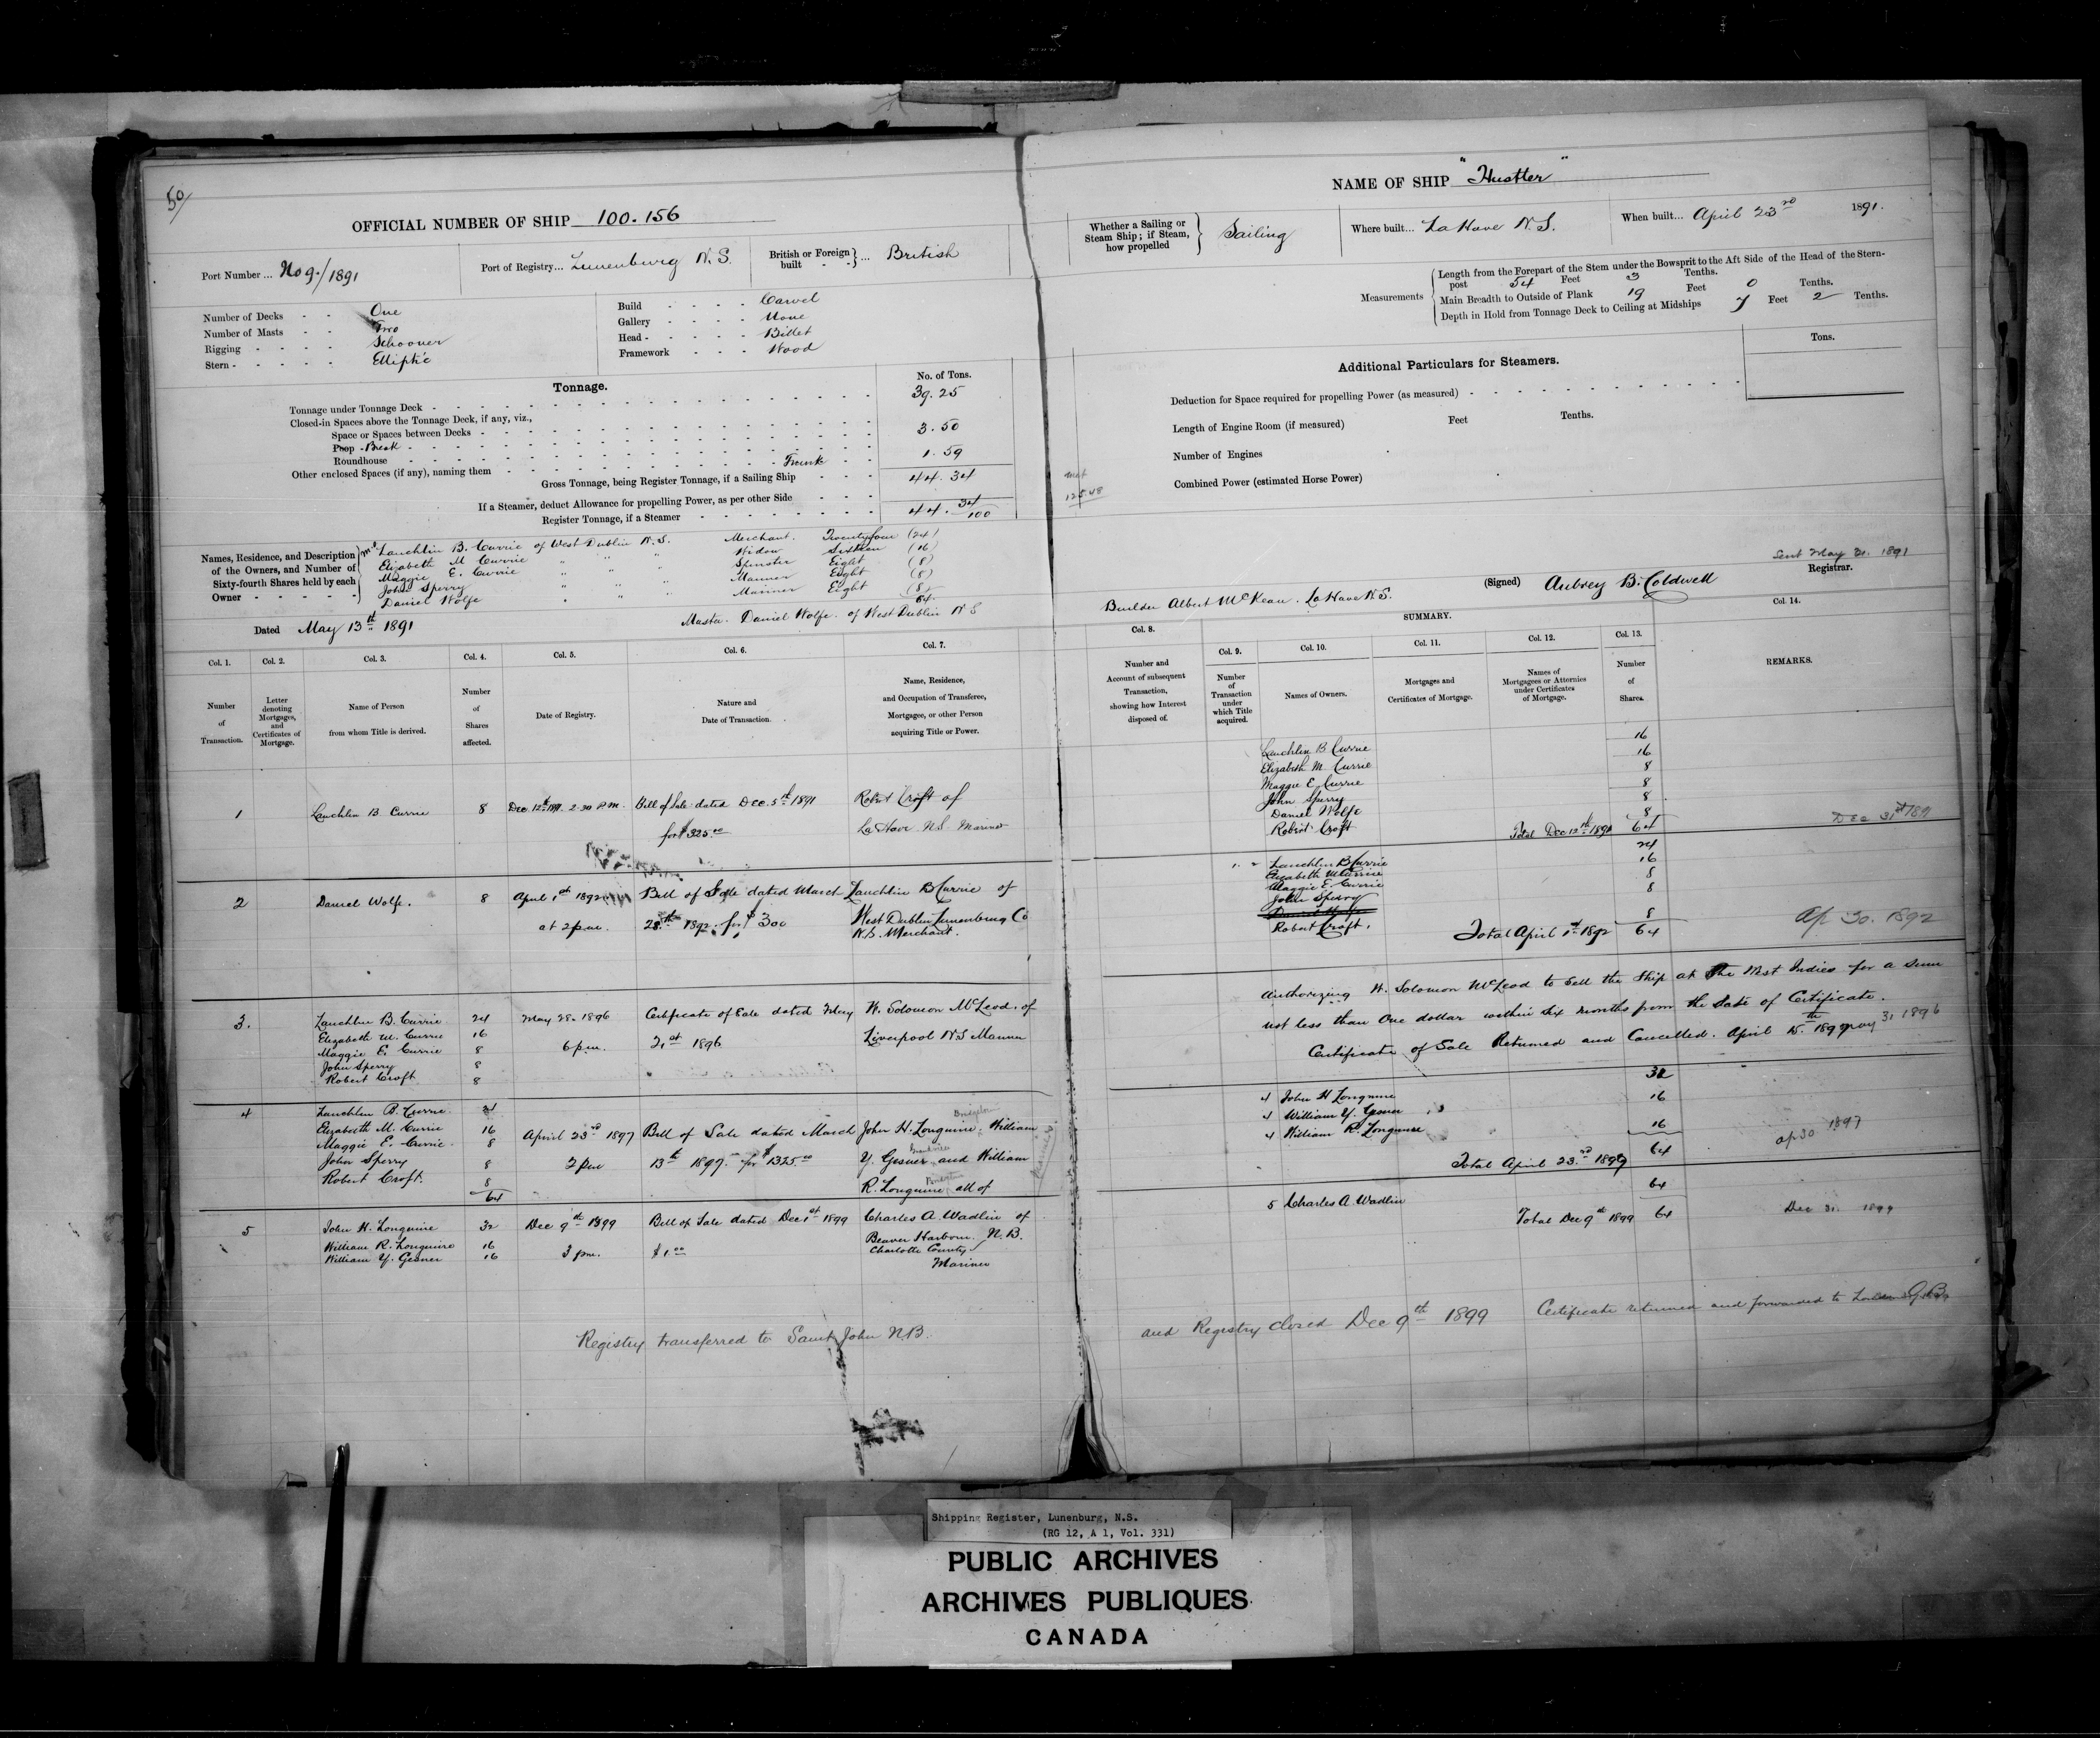 50/
OFFICIAL NUMBER OF SHIP 100.156
Port Number ... No 9./1891
Port of Registry... Lunenburg N.S.
British or Foreign built - - } ... British
Number of Decks - - One
Number of Masts - - Two
Rigging - - - - Schooner
Stern - - - - - Elliptic
Build - - - - Carvel
Gallery - - - - None
Head - - - - - Billet
Framework - - - Wood
Tonnage.
No. of Tons.
Tonnage under Tonnage Deck - 39.25
Closed-in Spaces above the Tonnage Deck, if any, viz.,
Space or Spaces between Decks -
Poop - Break - 3.50
Roundhouse -
Other enclosed Spaces (if any), naming them - Trunk - 1.59
Gross Tonnage, being Register Tonnage, if a Sailing Ship - - - 44.34
If a Steamer, deduct Allowance for propelling Power, as per other Side - - -
Register Tonnage, if a Steamer - 44. 34/100
Names, Residence, and Description of the Owners, and Number of Sixty-fourth Shares held by each Owner - - - - -
Lauchlin B. Currie of West Dublin N.S. Merchant. Twentyfour (24)
Elizabeth M Currie " " " Widow Sixteen (16)
Maggie E. Currie " " " Spinster Eight (8)
John Sperry " " " Mariner Eight (8)
Daniel Wolfe " " " Mariner Eight (8)
64.
Dated May 13th 1891
Master. Daniel Wolfe. of West Dublin N S
Col. 1. Col. 2. Col. 3. Col. 4. Col. 5. Col. 6. Col. 7.
Number of Transaction.
Letter denoting Mortgages, and Certificates of Mortgage.
Name of Person from whom Title is derived.
Number of Shares affected.
Date of Registry.
Nature and Date of Transaction.
Name, Residence, and Occupation of Transferee, Mortgagee, or other Person acquiring Title or Power.
1 Lauchlin B Currie 8 Dec. 12th 1891 2.30 P.M. Bill of Sale dated Dec. 5th 1891 Robert Croft of
for $325.00 La Have N.S. Mariner
2 Daniel Wolfe. 8 April 1st 1892 Bill of Sale dated March Lauchlin B Currie of
at 2 p.m. 28th 1892 for $300 West Dublin Lunenburg Co
N.S. Merchant.
3. Lauchlin B. Currie 24 May 28. 1896 Certificate of Sale dated May W. Solomon McLeod. of
Elizabeth M. Currie 16 6 p.m. 21st 1896 Liverpool N S Mariner
Maggie E. Currie 8
John Sperry 8
Robert Croft 8
4 Lauchlin B. Currie 24
Elizabeth M. Currie 16 April 23rd 1897 Bill of Sale dated March John H. Longmire. William
Maggie E. Currie 8
John Sperry 8 2 pm 13th 1897. for $1325.00 Y. Gesner and William
Robert Croft. 8 R. Longmire all of
64
5 John H. Longmire 32 Dec 9th 1899 Bill of Sale dated Dec 1st 1899 Charles A. Wadlin of
William R. Longmire 16 3 pm. $1.00 Beaver Harbour. N.B.
William Y. Gesner 16 Charlotte County
Mariner
Registry transferred to Saint John N.B.
NAME OF SHIP "Hustler"
Whether a Sailing or Steam Ship; if Steam, how propelled } Sailing
Where built... La Have N.S.
When built... April 23rd 1891.
Measurements
Length from the Forepart of the Stem under the Bowsprit to the Aft Side of the Head of the Stern-
post 54 Feet 3 Tenths.
Main Breadth to Outside of Plank 19 Feet 0 Tenths.
Depth in Hold from Tonnage Deck to Ceiling at Midships 7 Feet 2 Tenths.
Additional Particulars for Steamers.
Tons.
Deduction for Space required for propelling Power (as measured) -
Length of Engine Room (if measured) Feet Tenths.
Number of Engines
Combined Power (estimated Horse Power)
Sent May 31. 1891
Builder Albert McKean. La Have N.S.
(Signed) Aubrey B. Coldwell Registrar.
SUMMARY.
Col. 8. Col. 9. Col. 10. Col. 11. Col. 12. Col. 13. Col. 14.
Number and Account of subsequent Transaction, showing how Interest disposed of.
Number of Transaction under which Title acquired.
Names of Owners.
Mortgages and Certificates of Mortgage.
Names of Mortgagees or Attornies under Certificates of Mortgage.
Number of Shares.
REMARKS.
Lauchlin B Currie 16
Elizabeth M. Currie 16
Maggie E. Currie 8
John Sperry 8
Daniel Wolfe 8
Robert Croft 8
Total Dec 12th 1891 64 Dec 31st 1891
Lauchlin B Currie 24
Elizabeth M Currie 16
Maggie E. Currie 8
John Sperry 8
Daniel Wolfe
Robert Croft. 8
Total April 1st 1892 64 Ap 30. 1892
Authorizing W. Solomon McLeod to sell the Ship at The West Indies for a sum
not less than One dollar within six months from the Date of Certificate.
Certificate of Sale Returned and Cancelled. April 15th 1897 May 31 1896
4 John H Longmire 32
4 William Y. Gesner 16
4 William R. Longmire 16
Total April 23rd 1897 64 ap 30 1897
5 Charles A. Wadlin 64
Total Dec 9th 1899 64 Dec 31. 1899
and Registry closed Dec 9th 1899 Certificate returned and forwarded to London G.B.
Shipping Register, Lunenburg, N.S.
(RG 12, A 1, Vol. 331)
PUBLIC ARCHIVES
ARCHIVES PUBLIQUES
CANADA